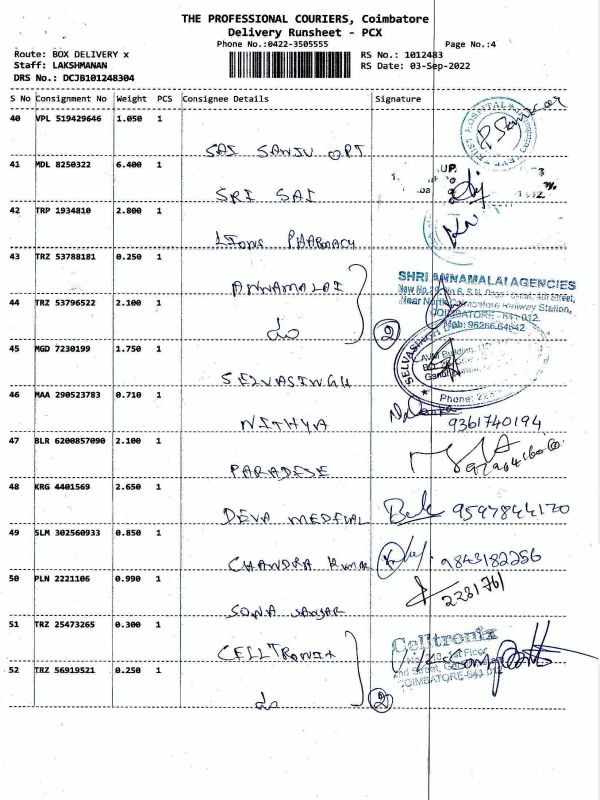 THE PROFESSIONAL COURIERS, Coimbatore
Delivery Runsheet - PCX
Phone No.:0422-3505555
Page No.:4
Route: BOX DELIVERY x
RS No.: 1012483
Staff: LAKSHMANAN
RS Date: 03-Sep-2022
DRS No.: DCJB101248304
S No Consignment No Weight PCS Consignee Details Signature
40 VPL 519429646 1.050 1
SAI SANJU OPT
41 MDL 8250322 6.400 1
SRI SAI
42 TRP 1934810 2.800 1
LIONS PHARMACY
43 TRZ 53788181 0.250 1
ANNAMALAI
SHRI ANNAMALAI AGENCIES
Near North Coimbatore Railway Station,
COIMBATORE - 641 012.
Mob: 96266 64642
44 TRZ 53796522 2.100 1
do 2
45 MGD 7230199 1.750 1
SELVASINGH
46 MAA 290523783 0.710 1
NITHYA 9361740194
47 BLR 6200857090 2.100 1
PARADISE
48 KRG 4401569 2.650 1
DEVA MEDICAL 9597844170
49 SLM 302560933 0.850 1
CHANDRA Kumar 9843182256
50 PLN 2221106 0.990 1
SONA 2231761
51 TRZ 25473265 0.300 1
CELLTRONIX
Celltronix
52 TRZ 56919521 0.250 1
COIMBATORE-641 012
do 2